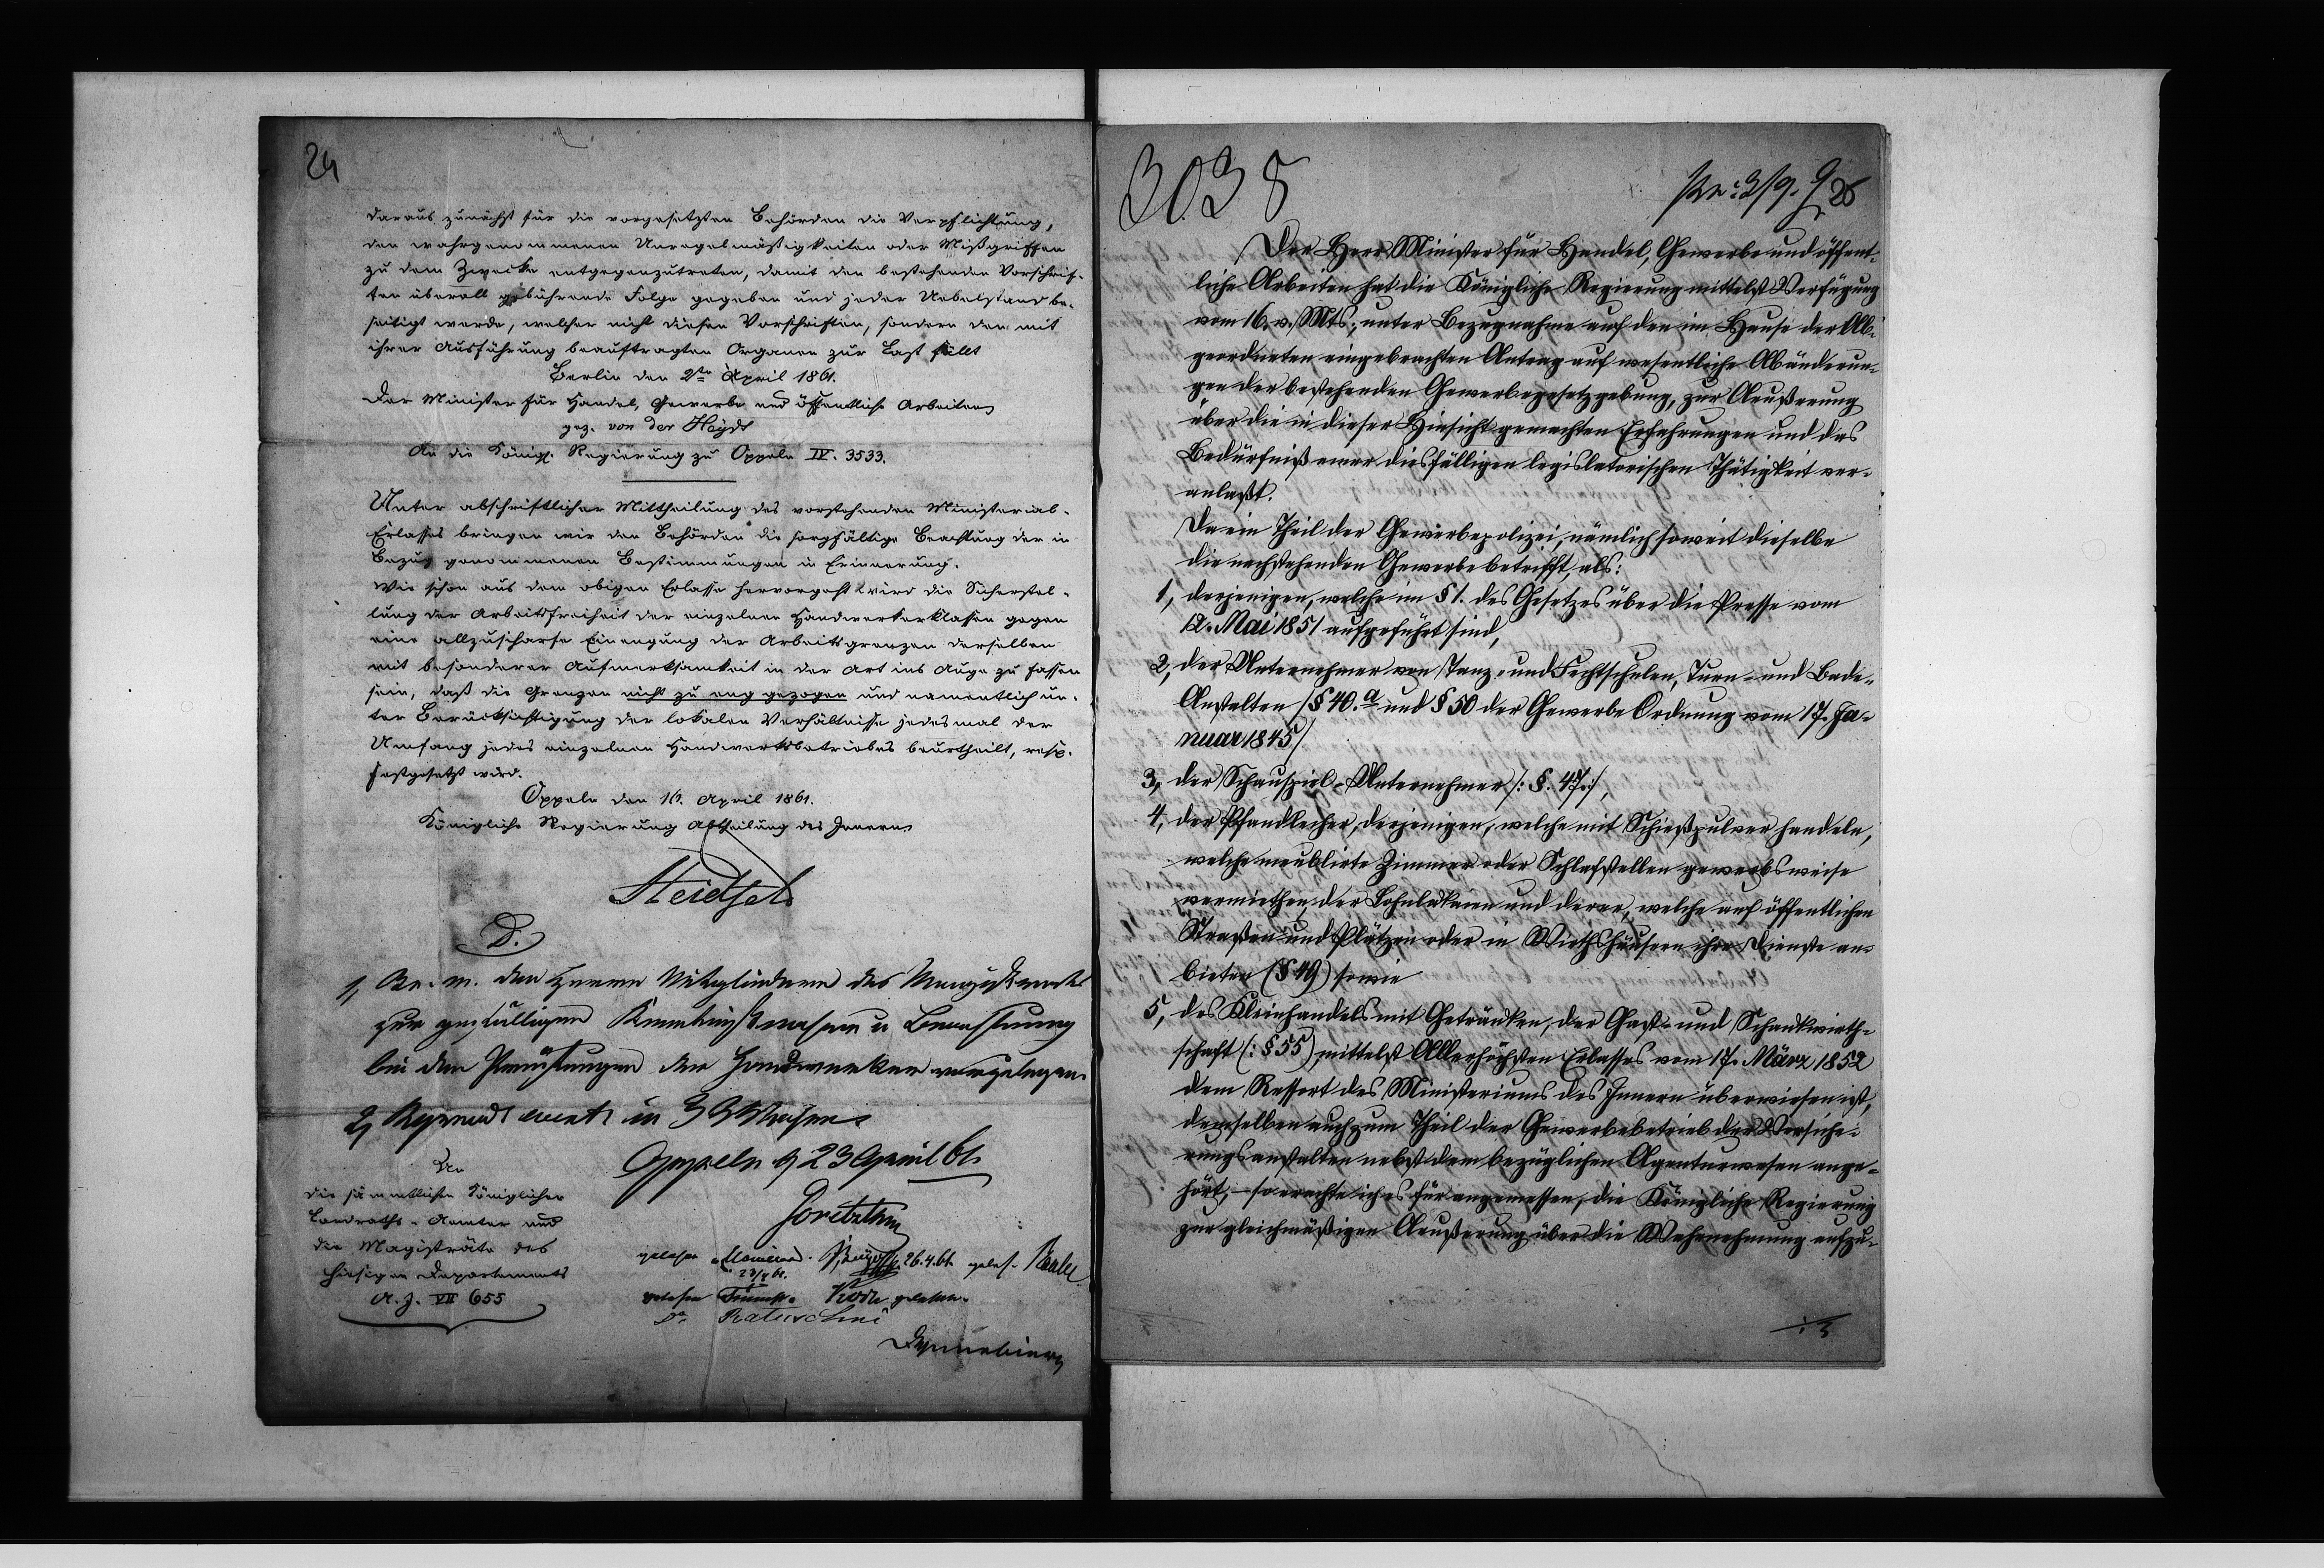 24
daraus zunächst für die vorgesetzten Behörden die Verpflichtung,
den wahrgenommenen Unregelmäßigkeiten oder Mißgriffen
zu dem Zwecke entgegenzutreten, damit den bestehenden Vorschrif-
ten überall gebührende Folge gegeben und jeder Uebelstand be-
seitigt werde, welcher nicht diesen Vorschriften, sondern den mit
ihrer Ausführung beauftragten Organen zur Last fällt
Berlin den 2ten April 1861.
Der Minister für Handel, Gewerbe und öffentliche Arbeiten
gez. von der Heydt
An die Königl. Regierung zu Oppeln IV. 3533.
Unter abschriftlicher Mittheilung des vorstehenden Ministerial-
Erlasses bringen wir den Behörden die sorgfältige Beachtung der in
Bezug genommenen Bestimmungen in Erinnerung.
Wie schon aus dem obigen Erlasse hervorgeht wird die Sicherstel-
lung der Arbeitsfreiheit der einzelnen Handwerkerklassen gegen
eine allzuscharfe Einengung der Arbeitsgrenzen derselben
mit besonderer Aufmerksamkeit in der Art ins Auge zu fassen
sein, daß die Grenzen nicht zu eng gezogen und namentlich un-
ter Berücksichtigung der lokalen Verhältnisse jedesmal der
Umfang jedes einzelnen Handwerksbetriebes beurtheilt, resp.
festgesetzt wird.
Oppeln den 16. April 1861.
Königliche Regierung Abtheilung des Innern
D.
1, den Herren Mitgliedern des Magistrats
zur gefälligen Kenntnißnahme u Beachtung
bei den Prüfungen der Handwerker vorzulegen.
2, in 3 Wochen
Oppeln d 23 April 61.
Goretzki
An
die sämmtlichen Königlichen
Landraths-Aemter und
die Magisträte des
hiesigen Departements
A. J. VII 655
gelesen 26.4.61. geles.
23/4 61.
gelesen Koch gelesen.
Do.
3038
25
Der Herr Minister für Handel, Gewerbe und öffent-
liche Arbeiten hat die Königliche Regierung mittelst Verfügung
vom 16. v. Mts., unter Bezugnahme auf den im Hause der Ab-
geordneten eingebrachten Antrag auf wesentliche Abänderun-
gen der bestehenden Gewerbegesetzgebung, zur Aeußerung
über die in dieser Hinsicht gemachten Erfahrungen und das
Bedürfniß einer diesfälligen legislatorischen Thätigkeit ver-
anlaßt.
Da ein Theil der Gewerbepolizei, nämlich soweit dieselbe
die nachstehenden Gewerbe betrifft, als:
1, derjenigen, welche im § 1. des Gesetzes über die Presse vom
12. Mai 1851 aufgeführt sind,
2, der Unternehmer von Tanz- und Fechtschulen, Turn- und Bade-
Anstalten /§ 40.a und § 50 der Gewerbe Ordnung vom 17. Ja-
nuar 1845/
3, der Schauspiel-Unternehmer /: § 47:/,
4, der Pfandleiher, derjenigen, welche mit Schießpulver handeln,
welche meublirte Zimmer oder Schlafstellen gewerbsweise
vermiethen, der Lohnlakaien und derer, welche auf öffentlichen
Straßen und Plätzen oder in Wirthshäusern ihre Dienste an-
bieten (§ 49) sowie
5, des Kleinhandels mit Getränken, der Gast- und Schankwirth-
schaft (: § 55) mittelst Allerhöchsten Erlasses vom 17. März 1852
dem Ressort des Ministeriums des Innern überwiesen ist,
demselben auch zum Theil der Gewerbebetrieb der Versiche-
rungsanstalten nebst dem bezüglichen Agenturwesen ange-
hört, – so erachte ich es für angemessen, die Königliche Regierung
zur gleichmäßigen Aeußerung über die Wahrnehmung aufzu-